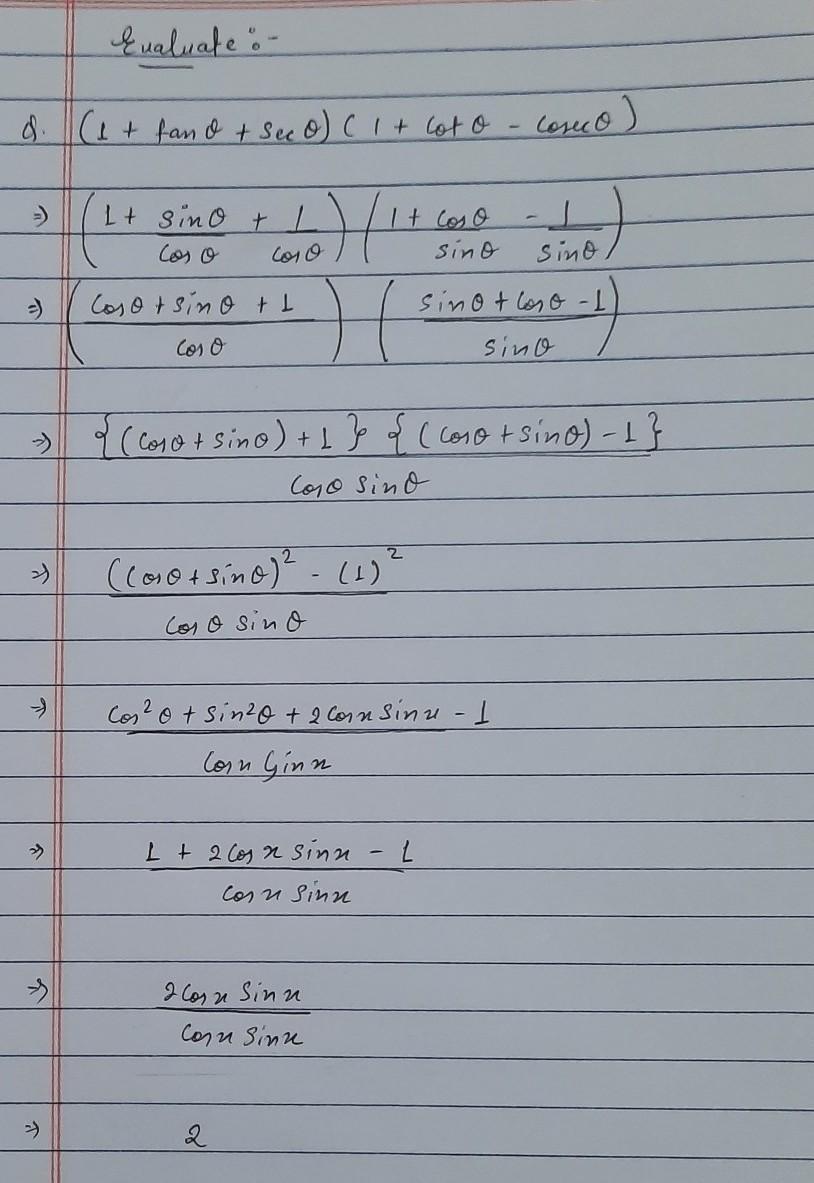 Evaluate :-
Q. (1 + tan θ + sec θ) (1 + cot θ - cosec θ)
⇒ (1 + sin θ / cos θ + 1 / cos θ) (1 + cos θ / sin θ - 1 / sin θ)
⇒ (cos θ + sin θ + 1 / cos θ) (sin θ + cos θ - 1 / sin θ)
⇒ {(cos θ + sin θ) + 1} {(cos θ + sin θ) - 1} / cos θ sin θ
⇒ ((cos θ + sin θ)² - (1)² / cos θ sin θ
⇒ cos² θ + sin² θ + 2 cos x sin x - 1 / cos x sin x
⇒ 1 + 2 cos x sin x - 1 / cos x sin x
⇒ 2 cos x sin x / cos x sin x
⇒ 2